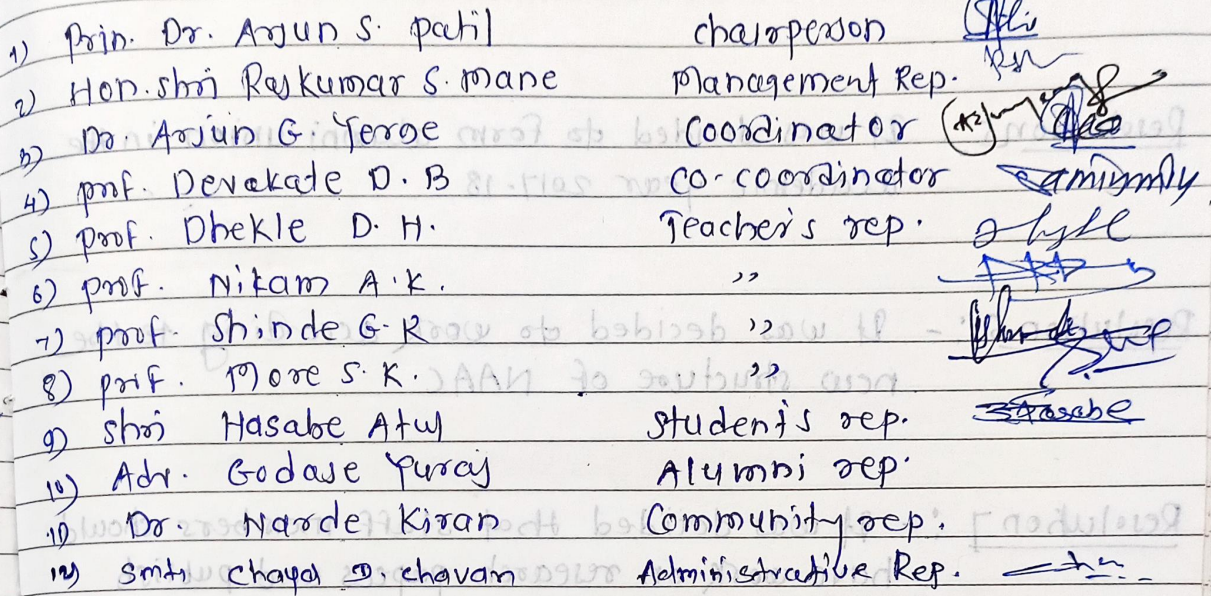 1) Prin. Dr. Arjun S. Patil chairperson
2) Hon. Shri Rajkumar S. Mane Management Rep.
3) Dr. Arjun G Yerge Coordinator
4) prof. Devakate D. B co-coordinator
5) prof. Dhekle D. H. Teacher's rep.
6) prof. Nikam A.K. ,,
7) prof. Shinde G. R ,,
8) prof. More S. K. ,,
9) Shri Hasabe Atul Student's rep. Hasabe
10) Adv. Godase Yuraj Alumni rep.
11) Dr. Narde Kiran Community rep.
12) Smt. Chaya D. chavan Administrative Rep.